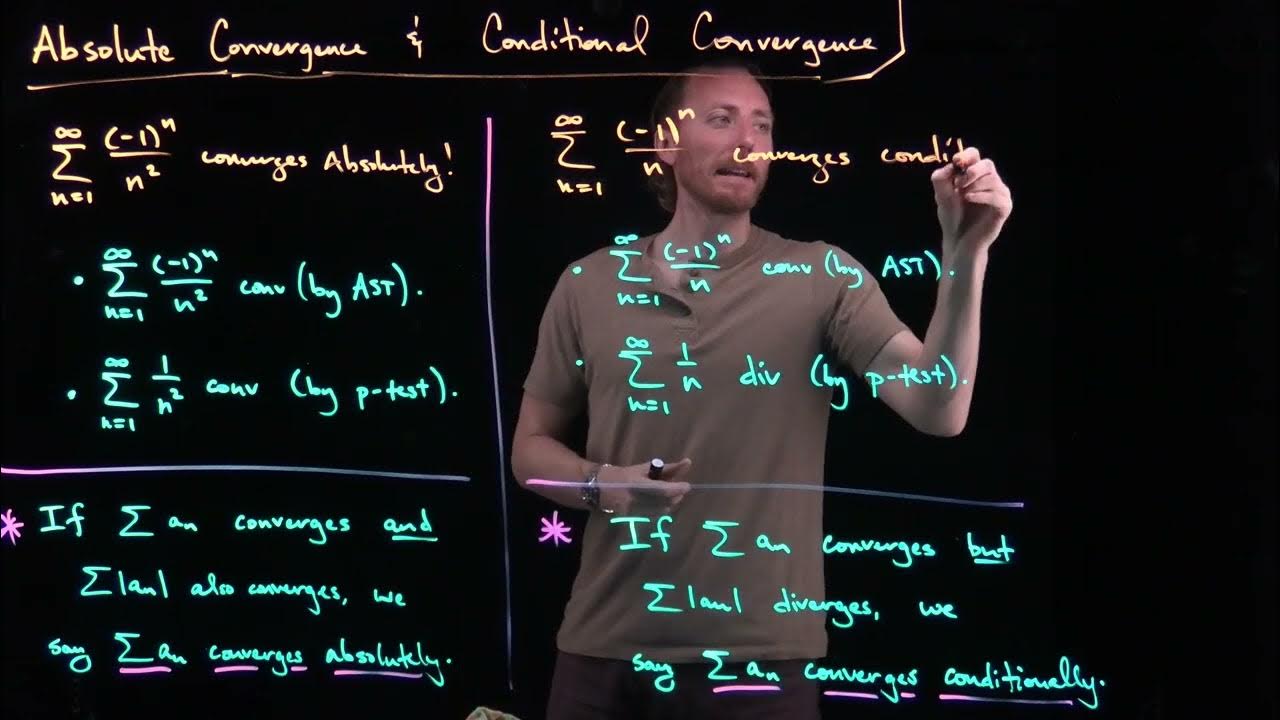 Absolute Convergence & Conditional Convergence
∞∑n=1 (-1)ⁿ/n² converges Absolutely!
• ∞∑n=1 (-1)ⁿ/n² conv (by AST).
• ∞∑n=1 1/n² conv (by p-test).
* If ∑ aₙ converges and
∑|aₙ| also converges, we
say ∑ aₙ converges absolutely.
∞∑n=1 (-1)ⁿ/n converges condit
• ∞∑n=1 (-1)ⁿ/n conv (by AST).
• ∞∑n=1 1/n div (by p-test).
* If ∑ aₙ converges but
∑|aₙ| diverges, we
say ∑ aₙ converges conditionally.